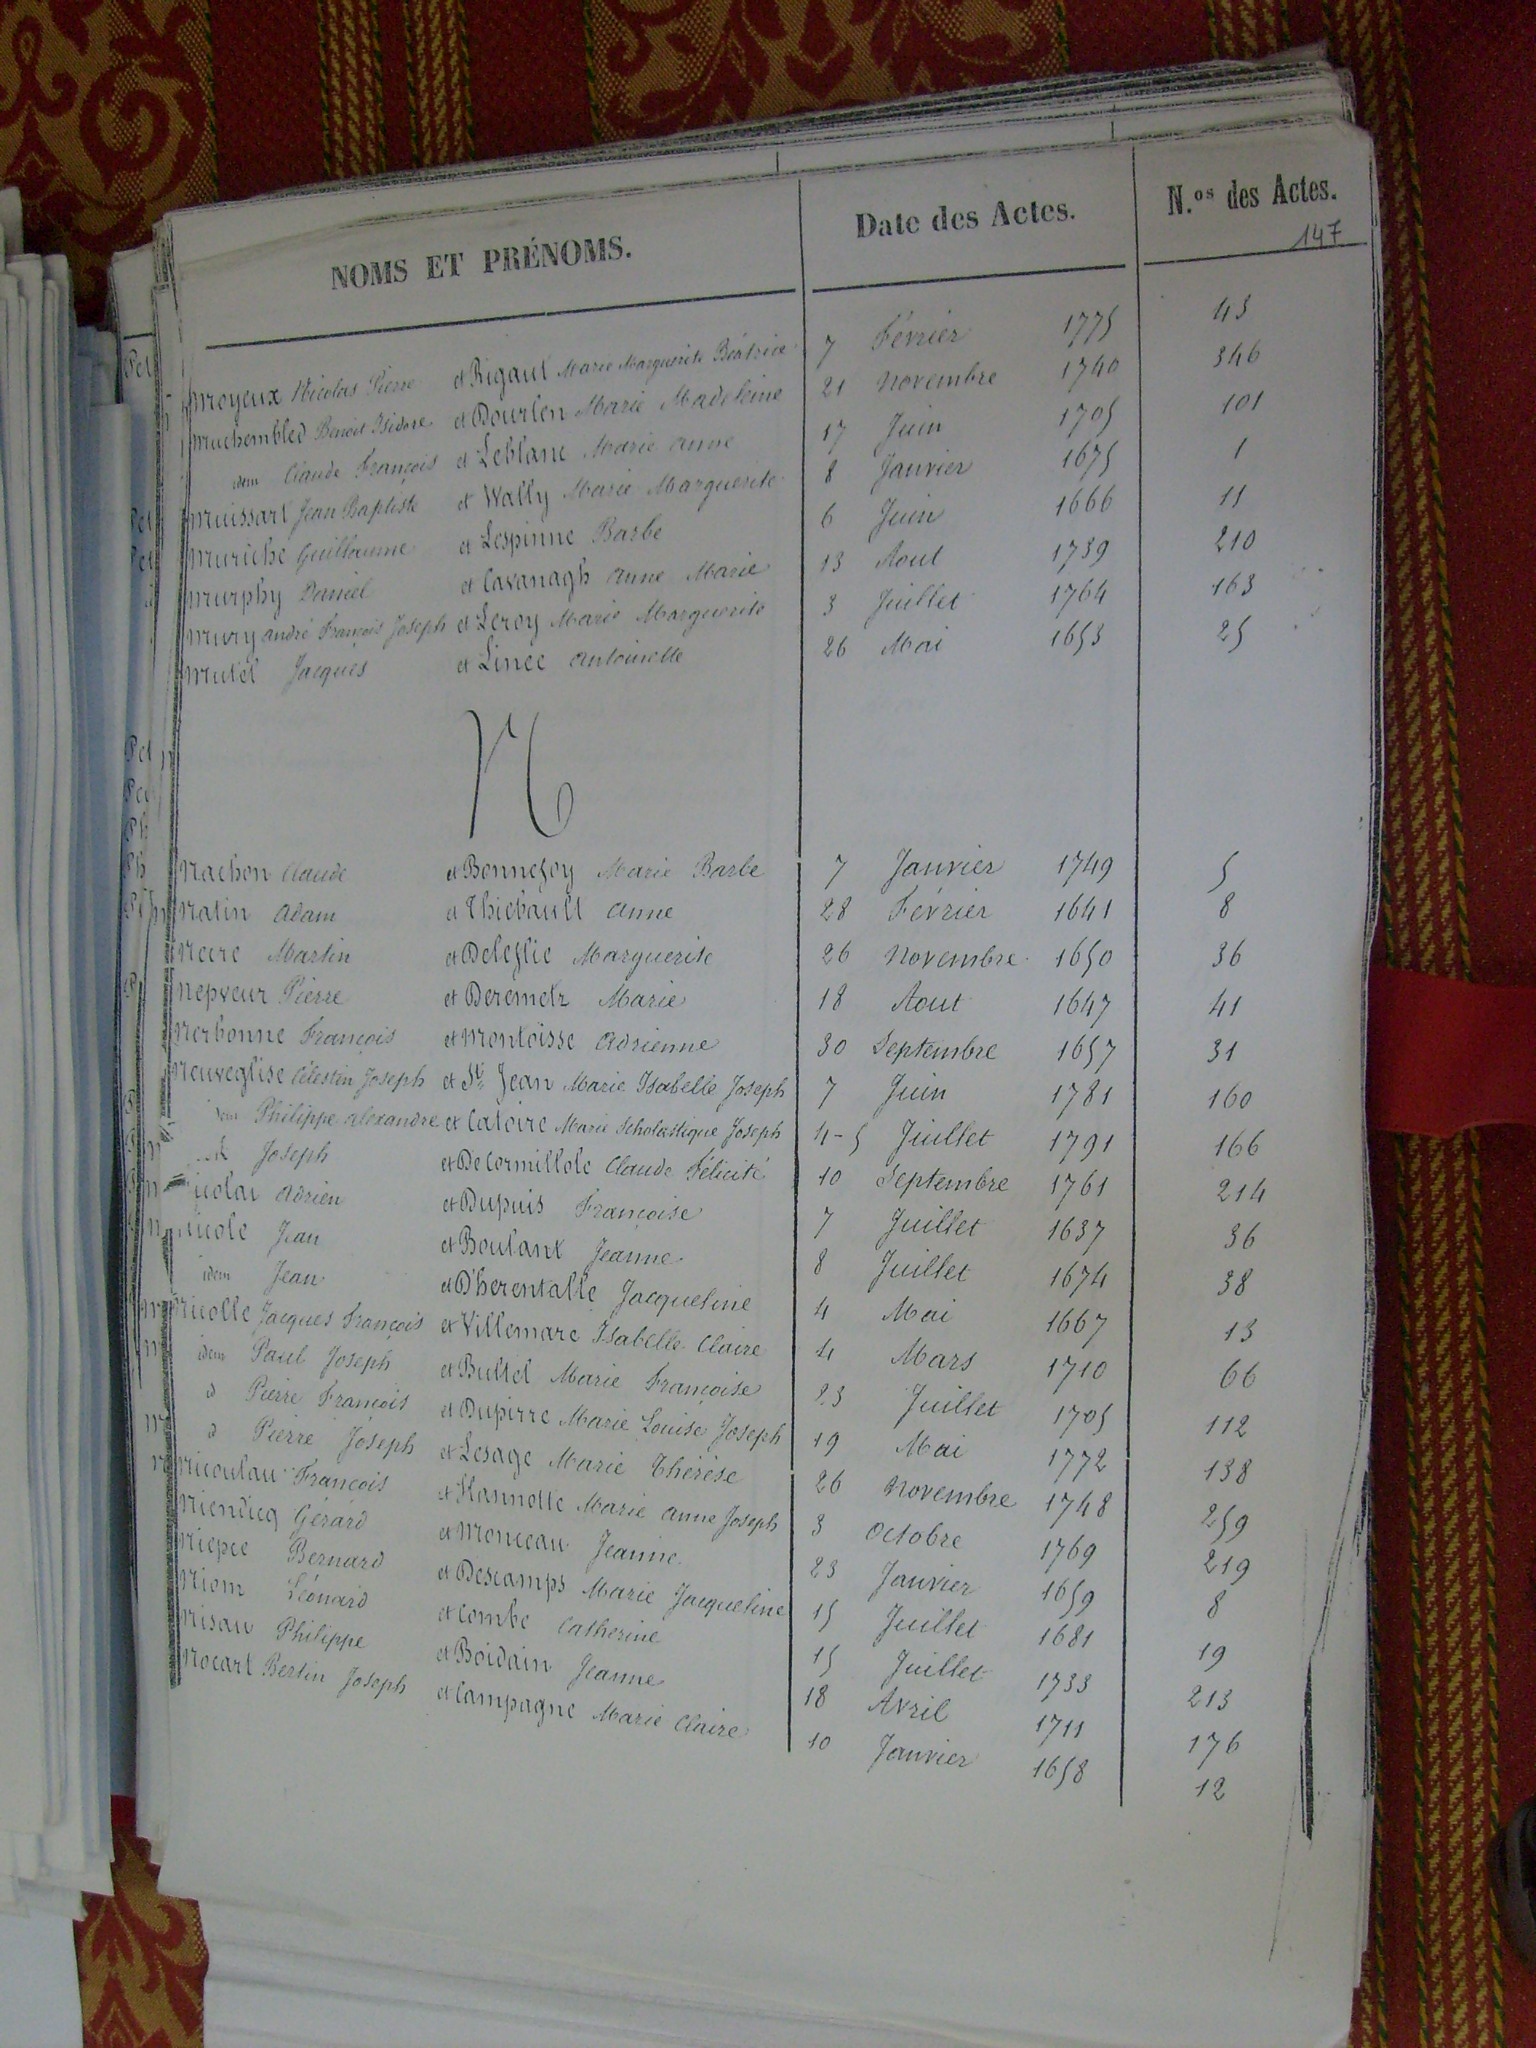 NOMS ET PRÉNOMS. Date des Actes. N.os des Actes.
147
Moyeux Nicolas Pierre et Rigaut Marie Marguerite Béatrice 7 Février 1775 43
Muchembled Benoit Isidore et Dourlen Marie Madeleine 21 Novembre 1740 346
idem Claude François et Leblanc Marie Anne 17 Juin 1705 101
Muissart Jean Baptiste et Wally Marie Marguerite 8 Janvier 1675 1
Muriche Guillaume et Lespinne Barbe 6 Juin 1666 11
Murphy Daniel et Cavanagh Anne Marie 13 Aout 1739 210
Mury André François Joseph et Leroy Marie Marguerite 3 Juillet 1764 163
Mutel Jacques et Linée Antoinette 26 Mai 1653 25
N
Nachon Claude et Bonnefoy Marie Barbe 7 Janvier 1749 5
Natin Adam et Thiebault Anne 28 Février 1641 8
Neere Martin et Deleflie Marguerite 26 Novembre 1650 36
Nepveur Pierre et Deremetz Marie 18 Aout 1647 41
Nerbonne François et Montoisse Adrienne 30 Septembre 1657 31
Neuveglise Célestin Joseph et St. Jean Marie Isabelle Joseph 7 Juin 1781 160
idem Philippe Alexandre et Catoire Marie Scholastique Joseph 4-5 Juillet 1791 166
Joseph et De Cormillole Claude Félicité 10 Septembre 1761 214
icolai Adrien et Dupuis Françoise 7 Juillet 1637 36
Nicole Jean et Boulant Jeanne 8 Juillet 1674 38
idem Jean et D'herentalle Jacqueline 4 Mai 1667 13
Nicolle Jacques François et Villemare Isabelle Claire 4 Mars 1710 66
idem Paul Joseph et Bultel Marie Françoise 23 Juillet 1705 112
d Pierre François et Dupirre Marie Louise Joseph 19 Mai 1772 138
d Pierre Joseph et Lesage Marie Thérèse 26 Novembre 1748 259
Nicoulau François et Hannotte Marie Anne Joseph 3 Octobre 1769 219
Niendicq Gérard et Monceau Jeanne 23 Janvier 1659 8
Niepce Bernard et Descamps Marie Jacqueline 15 Juillet 1681 19
Niom Léonard et Combe Catherine 15 Juillet 1733 213
Nisau Philippe et Boidain Jeanne 18 Avril 1711 176
Nocart Bertin Joseph et Campagne Marie Claire 10 Janvier 1658 12